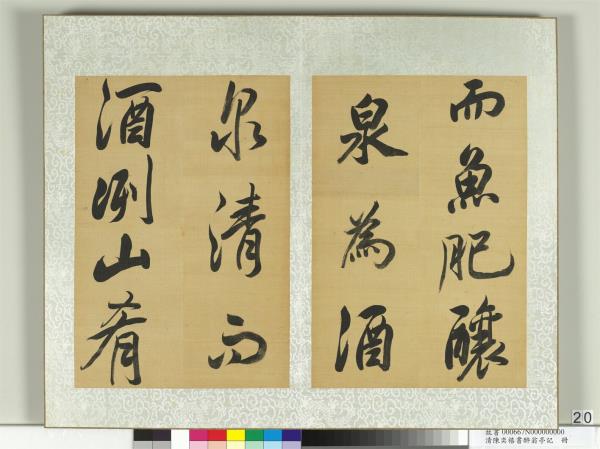 而魚肥釀
泉為酒
泉清而
酒冽山肴
20
故書000667N000000000
清陳奕禧書醉翁亭記 冊